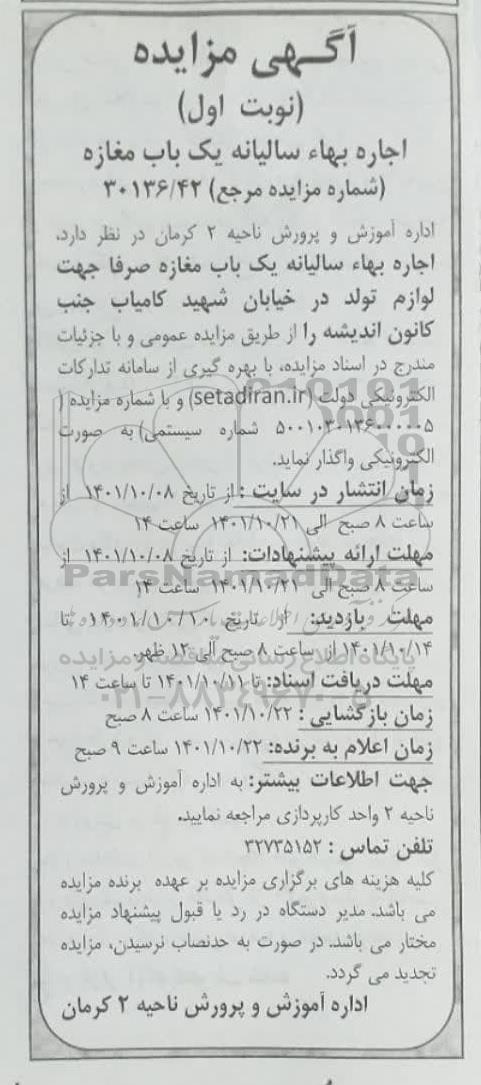 آگهی مزایده
(نوبت اول)
اجاره بهاء سالیانه یک باب مغازه
(شماره مزایده مرجع) ۳۰۱۳۶/۴۲
اداره آموزش و پرورش ناحیه ۲ کرمان در نظر دارد،
اجاره بهاء سالیانه یک باب مغازه صرفا جهت
لوازم تولد در خیابان شهید کامیاب جنب
کانون اندیشه را از طریق مزایده عمومی و با جزئیات
مندرج در اسناد مزایده، با بهره گیری از سامانه تدارکات
الکترونیکی دولت (setadiran.ir) و با شماره مزایده (
۵۰۰۱۰۳۰۱۳۶۰۰۰۰۰۵ شماره سیستمی) به صورت
الکترونیکی واگذار نماید.
زمان انتشار در سایت : از تاریخ ۱۴۰۱/۱۰/۰۸ از
ساعت ۸ صبح الی ۱۴۰۱/۱۰/۲۱ ساعت ۱۴
مهلت ارائه پیشنهادات: از تاریخ ۱۴۰۱/۱۰/۰۸ از
ساعت ۸ صبح الی ۱۴۰۱/۱۰/۲۱ ساعت ۱۴
ParsNamadData
مهلت بازدید: از تاریخ ۱۴۰۱/۱۰/۱۰ تا
۱۴۰۱/۱۰/۱۴ از ساعت ۸ صبح الی ۱۲ ظهر.
پایگاه اطلاع رسانی مناقصه و مزایده
مهلت دریافت اسناد: تا ۱۴۰۱/۱۰/۱۱ تا ساعت ۱۴
۰۲۱-۸۸۳۴۹۶۷۰-۵
زمان بازگشایی : ۱۴۰۱/۱۰/۲۲ ساعت ۸ صبح
زمان اعلام به برنده: ۱۴۰۱/۱۰/۲۲ ساعت ۹ صبح
جهت اطلاعات بیشتر: به اداره آموزش و پرورش
ناحیه ۲ واحد کارپردازی مراجعه نمایید.
تلفن تماس : ۳۲۷۳۵۱۵۲
کلیه هزینه های برگزاری مزایده بر عهده برنده مزایده
می باشد. مدیر دستگاه در رد یا قبول پیشنهاد مزایده
مختار می باشد. در صورت به حدنصاب نرسیدن، مزایده
تجدید می گردد.
اداره آموزش و پرورش ناحیه ۲ کرمان